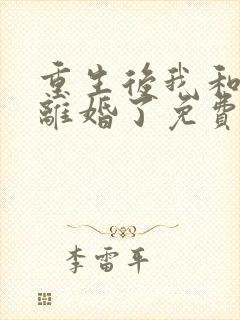 重生後我和
離婚了免費
李雷平